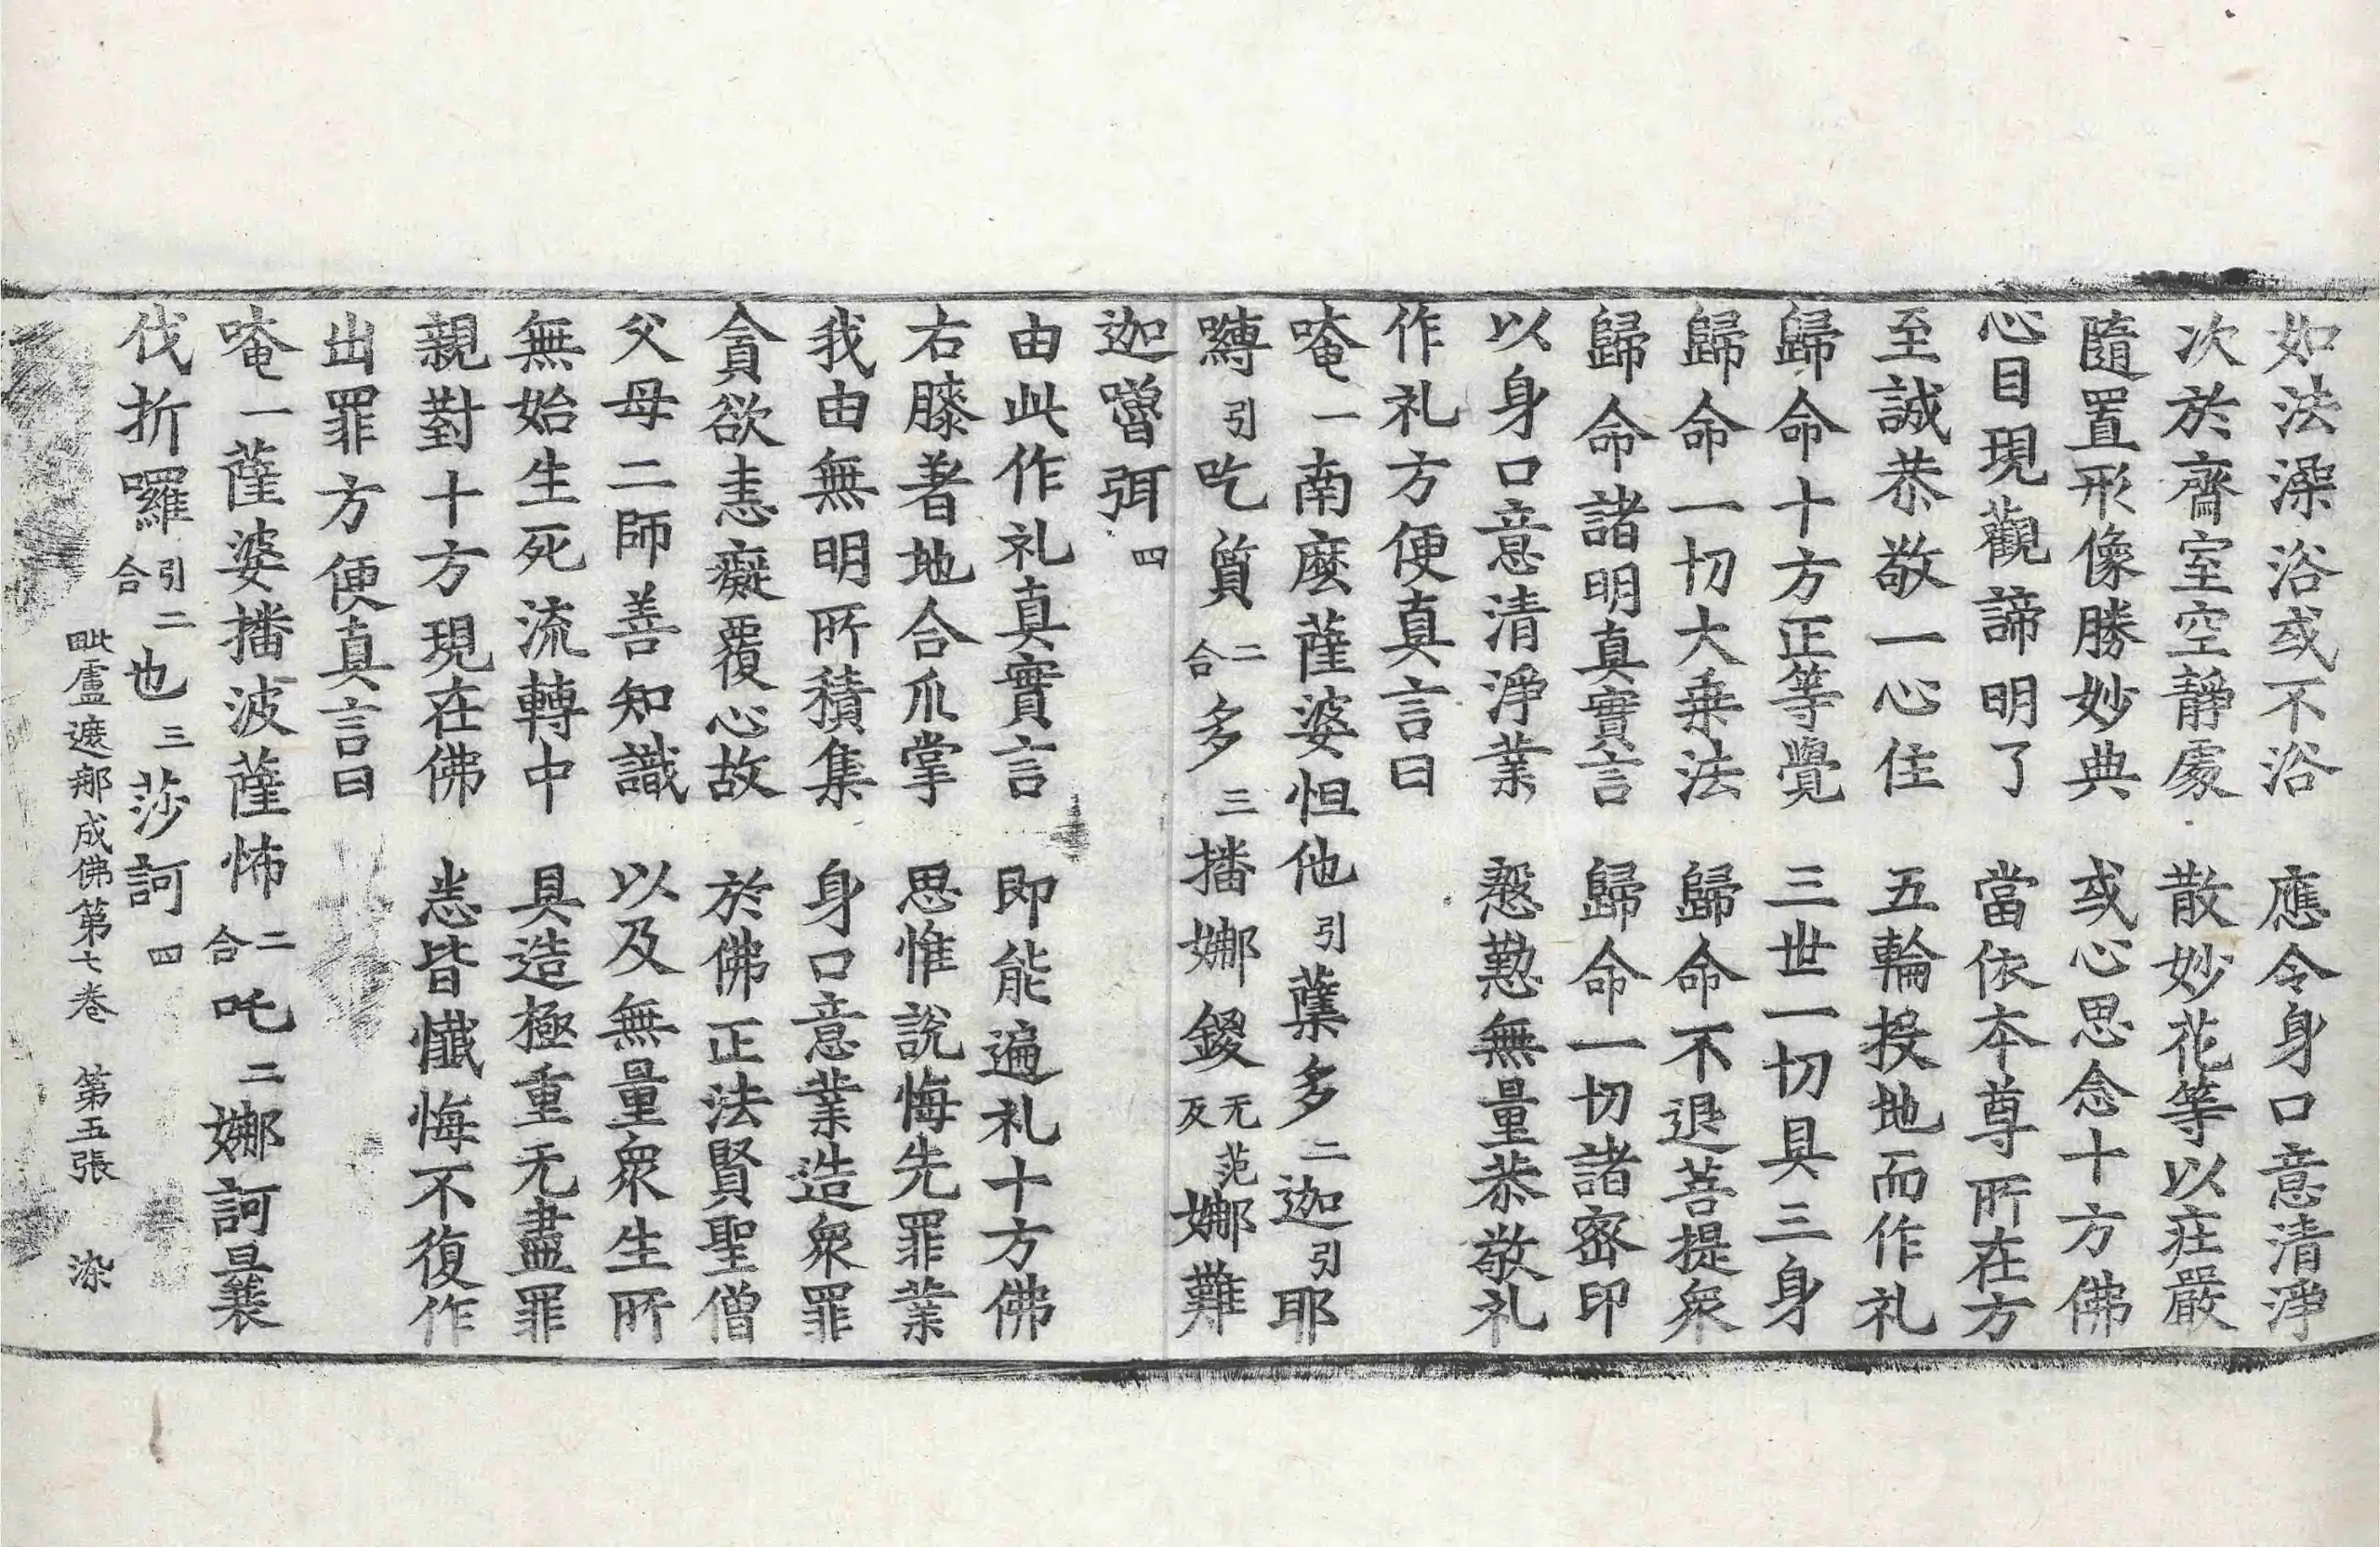 如法澡浴或不浴　應令身口意清淨
次於齊室空靜處　散妙花等以莊嚴
隨置形像勝妙典　或心思念十方佛
心目現觀諦明了　當依本尊所在方
至誠恭敬一心住　五輪投地而作礼
歸命十方正等覺　三世一切具三身
歸命一切大乗法　歸命不退菩提衆
歸命諸明真實言　歸命一切諸密印
以身口意清淨業　慇懃無量恭敬礼
作礼方便真言曰
唵一南麼薩婆怛他引蘖多二迦引耶
嚩引吃質二合多三播娜鍐无范反娜難
迦嚕弭四
由此作礼真實言　即能遍礼十方佛
右膝著地合爪掌　思惟說悔先罪業
我由無明所積集　身口意業造衆罪
貪欲恚癡覆心故　於佛正法賢聖僧
父母二師善知識　以及無量衆生所
無始生死流轉中　具造極重无盡罪
親對十方現在佛　悉皆懺悔不復作
出罪方便真言曰
唵一薩婆播波薩怖二合吒二娜訶曩
伐折囉引二合也三莎訶四
毗盧遮那成佛第七卷　第五張　染